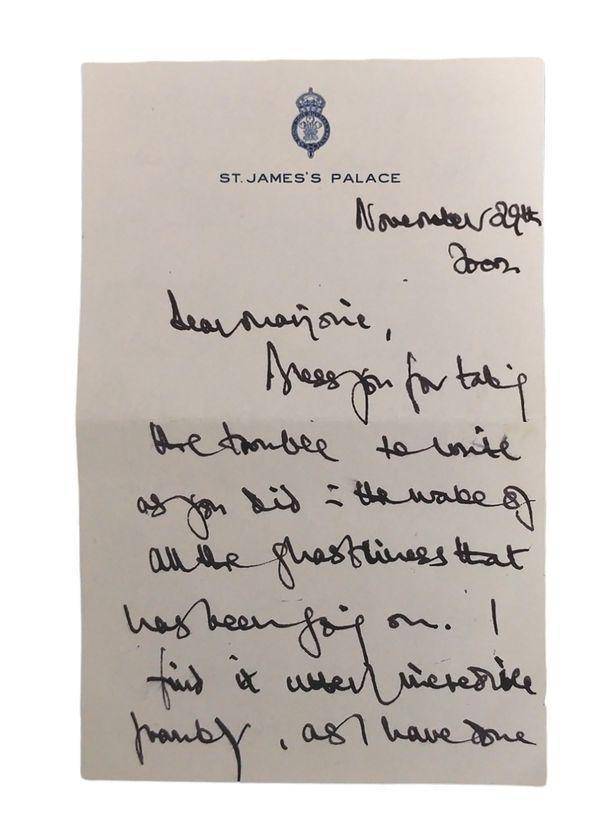 ST. JAMES'S PALACE
November 29th
2002
Dear Marjorie,
Bless you for taking
the trouble to write
as you did in the wake of
all the ghastliness that
has been going on. I
find it utterly incredible
frankly, as I have done